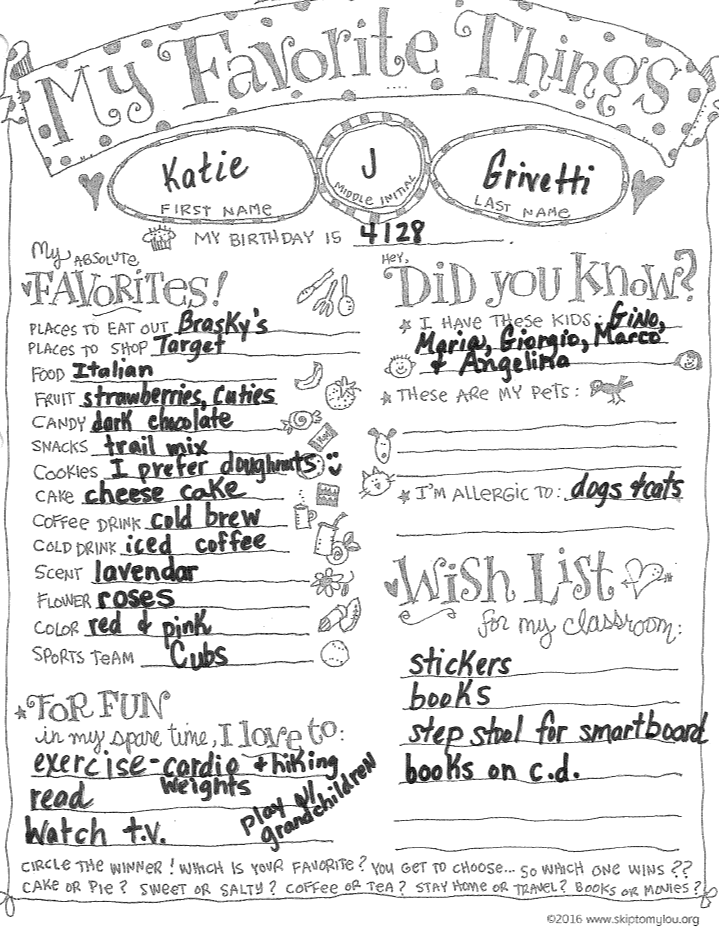 My Favorite Things
Katie J Grivetti
FIRST NAME MIDDLE INITIAL LAST NAME
MY BIRTHDAY IS 4128.
My ABSOLUTE
FAVORITES!
PLACES TO EAT OUT Brasky's
PLACES TO SHOP Target
FOOD Italian
FRUIT strawberries, Cuties
CANDY dark chocolate
SNACKS trail mix
COOKIES I prefer doughnuts
CAKE cheese cake
COFFEE DRINK cold brew
COLD DRINK iced coffee
SCENT lavendar
FLOWER roses
COLOR red & pink
SPORTS TEAM Cubs
FOR FUN
in my spare time, I love to:
exercise-cardio + hiking
weights
read
play w/
grandchildren
Watch t.v.
HEY,
DID you KNOW?
I HAVE THESE KIDS: Gino,
Maria, Giorgio, Marco
+ Angelina
THESE ARE MY PETS:
I'M ALLERGIC TO: dogs +cats
WISH LIST
for my classroom:
stickers
books
step stool for smartboard
books on c.d.
CIRCLE THE WINNER! WHICH IS YOUR FAVORITE? YOU GET TO CHOOSE... SO WHICH ONE WINS??
CAKE OR PIE? SWEET OR SALTY? COFFEE OR TEA? STAY HOME OR TRAVEL? BOOKS OR MOVIES?
©2016 www.skiptomylou.org